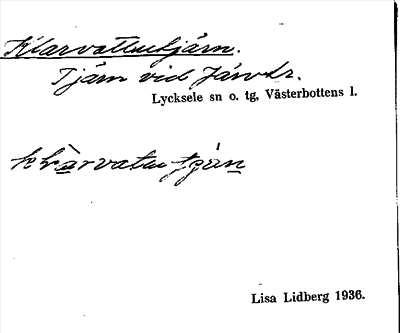 Klarvattutjärn.
Tjärn vid Järvtr.
Lycksele sn o. tg, Västerbottens l.
klarvatu tjän
Lisa Lidberg 1936.